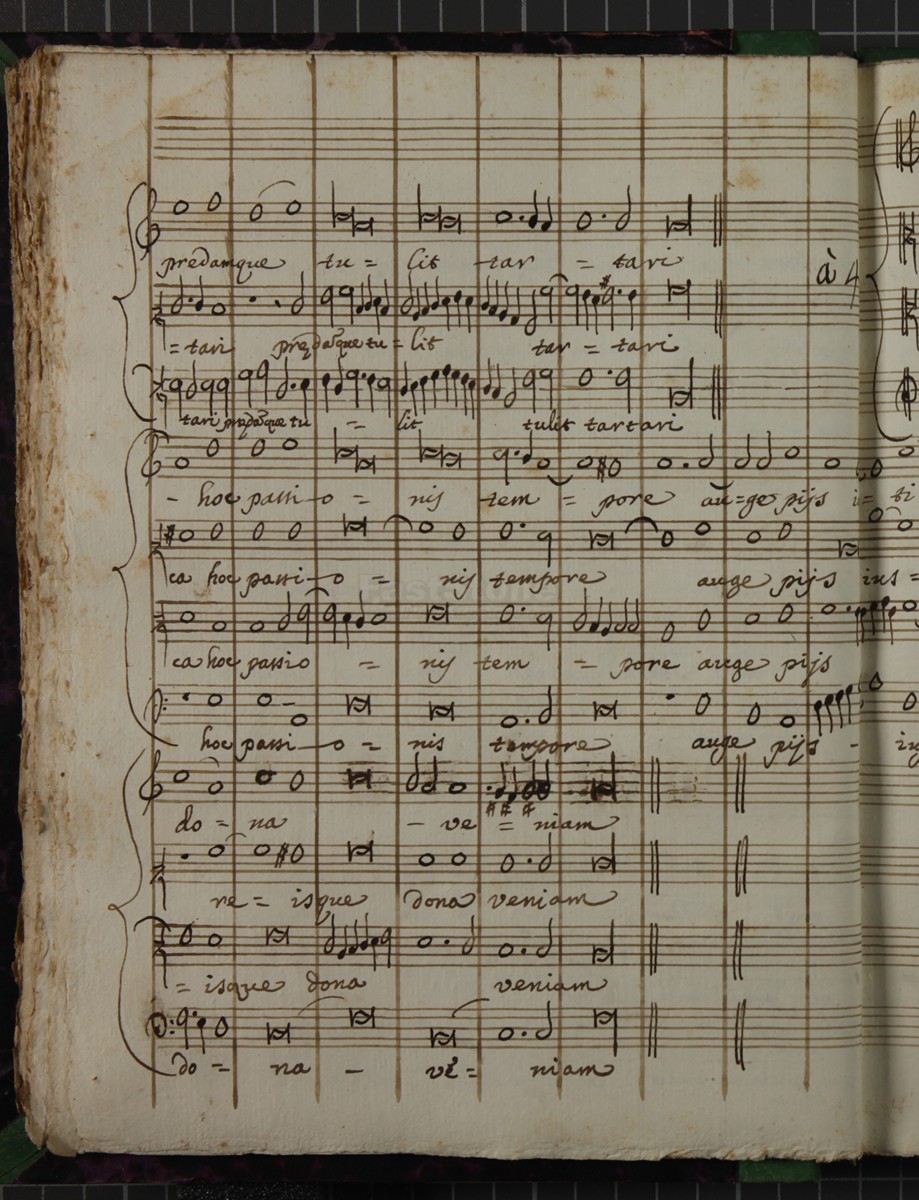 predamque tu = lit tar = tari
à 4
= tari predaq̃ue tu = lit tar = tari
tari predaq̃ue tu = lit tulit tartari
- hoc passi-o = nis tem = pore au=ge pijs i= ti
ca hoc passi-o = nis tempore auge pijs ius =
ca hoc passio = nis tem = pore auge pijs
hoc passi-o = nis tempore auge pijs -
do = na - ve = niam
re = isque dona veniam
= isque dona veniam
do = na - ve = niam